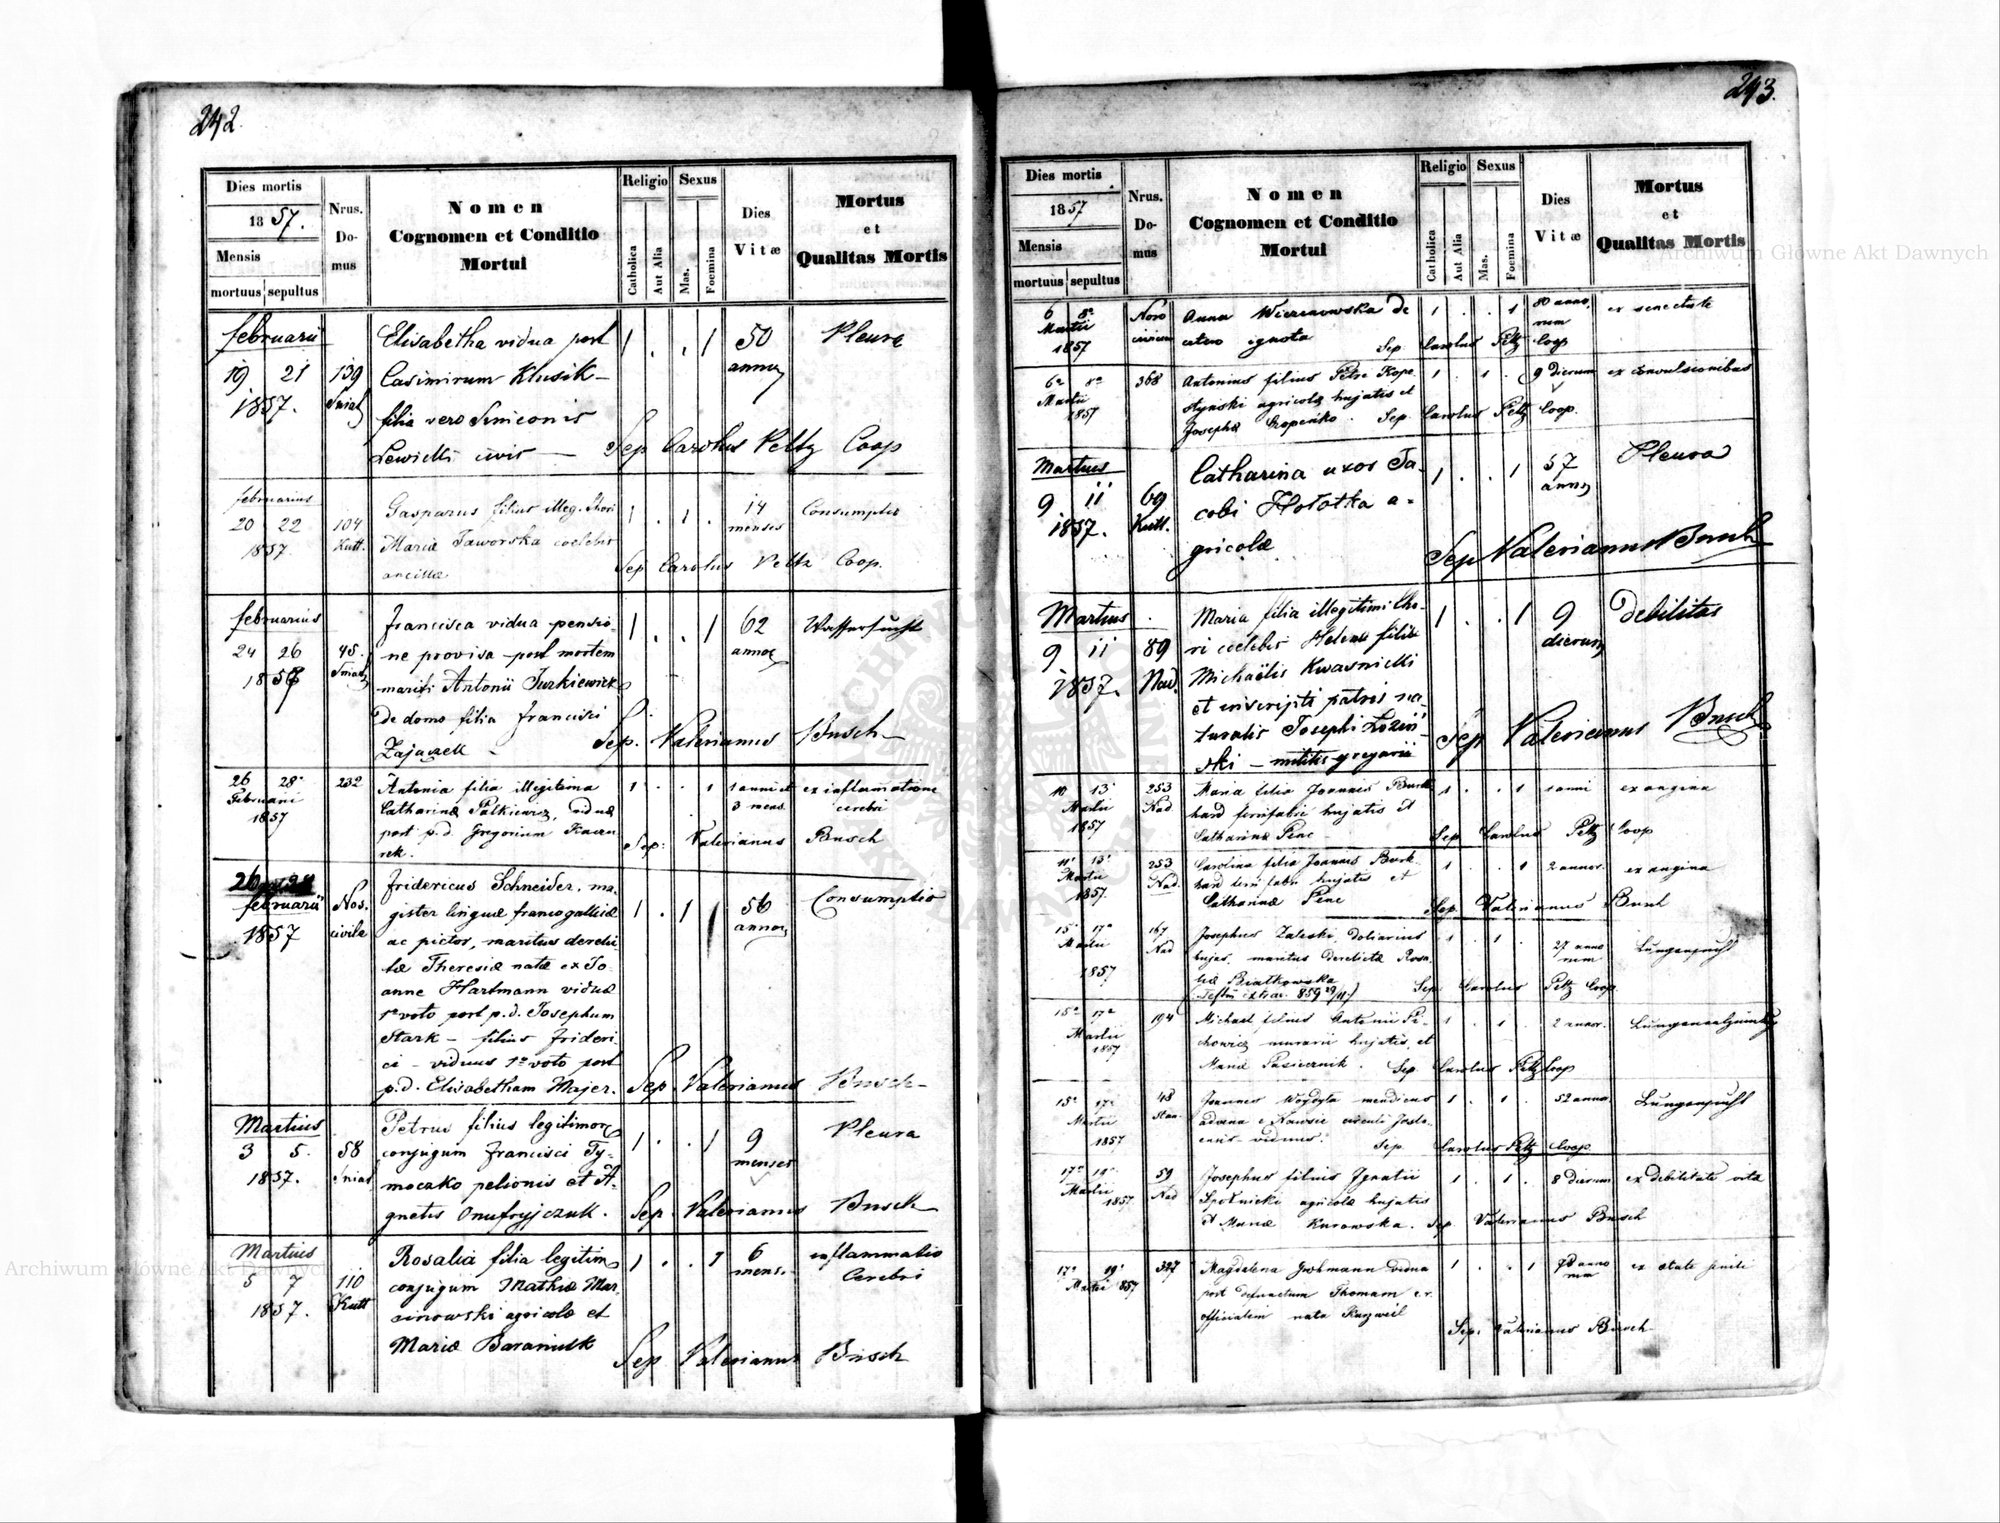 242.
Dies mortis
1857.
Mensis
mortuus sepultus
Nrus. Domus
Nomen
Cognomen et Conditio
Mortui
Religio
Catholica
Aut Alia
Sexus
Mas.
Foemina
Dies
Vitæ
Mortus
et
Qualitas Mortis
februarii
19 21
1857.
139
Sniat
Elisabetha vidua post
Casimirum Klusik
filia vero Simeonis
Lewicki civis
1 . . 1
50
annor
Pleura
Sep Carolus Peltz Coop
februarius
20 22
1857
104
Kutt.
Gasparus filius illeg. thori
Mariæ Jaworska coelebis
ancillæ
1 . 1 .
14
menses
Consumptio
Sep Carolus Peltz Coop.
februarius
24 26
1857
45.
Sniat
Francisca vidua pensio-
ne provisa post mortem
mariti Antonii Turkiewicz
De domo filia Francisci
Zajaczek
1 . . 1
62
annor
Wassersucht
Sep. Valerianus Busch
26 28
Februarii
1857
232
Antonia filia illegitima
Catharinæ Palkiewicz, viduæ
post p.d. Gregorium Kaczu
rek.
1 . . 1
1 anni et
3 mens.
ex inflamatione
cerebri
Sep: Valerianus Busch
26 28
februarii
1857
Nos.
civile
Fridericus Schneider, ma-
gister linguæ francogallicæ
ac pictor, maritus derelic
tæ Theresiæ natæ ex Jo-
anne Hartmann viduæ
1º voto post p.d. Josephum
Stark – filius Frideri-
ci – viduus 1º voto post
p.d. Elisabetham Majer.
1 . 1
56
annor
Consumptio
Sep. Valerianus Busch
Martius
3 5.
1857.
58
Sniat
Petrus filius legitimor
conjugum Francisci Ty-
moczko pelionis et A-
gnetis Onufryjczuk.
1 . . 1
9
menses
Pleura
Sep. Valerianus Busch
Martius
5 7
1857.
110
Kutt
Rosalia filia legitim
conjugum Mathiæ Mar-
cinowski agricolæ et
Mariæ Baraniuk
1 . . 1
6
mens.
inflammatio
Cerebri
Sep Valerianus Busch
243.
Dies mortis
1857
Mensis
mortuus sepultus
Nrus. Domus
Nomen
Cognomen et Conditio
Mortui
Religio
Catholica
Aut Alia
Sexus
Mas.
Foemina
Dies
Vitæ
Mortus
et
Qualitas Mortis
6 8º
Martii
1857
Anna de
cetero ignota
1 . . 1
80 anno
rum
ex senectute
Sep. Carolus Peltz Coop
6º 8º
Martii
1857
368
Antonius filius Petri Kope
styński agricolæ hujatis et
Josephæ
1 . 1 .
9 dierum
ex convulsionibus
Sep. Carolus Peltz Coop.
Martius
9 11
1857.
69
Kutt.
Catharina uxor Ja-
cobi Hołotka a-
gricolæ
1 . . 1
57
annor
Pleura
Sep Valerianus Busch
Martius
9 11
1857.
89
Nad.
Maria filia illegitimi tho-
ri coelebis Helenæ filiæ
Michaëlis Kwasnicki
et inscripti patris na-
turalis Josephi Łoziń
ski – militis gregarii
1 . . 1
9
dierum
Debilitas
Sep Valerianus Busch
10 13
Martii
1857
253
Nad.
Maria filia Joannis Burk
hard ferrifabri hujatis et
Catharinæ
1 . . 1
1 anni
ex angina
Sep. Carolus Peltz Coop
11 13
Martii
1857.
253
Nad.
Carolina filia Joannis Burk-
hard ferrifabri hujatis et
Catharinæ
1 . . 1
2 annor.
ex angina
Sep. Valerianus Busch
15 17º
Martii
1857
167
Nad
Josephus Zaleski, doliarius
hujas, maritus derelictæ Rosa
liæ Białkowska
1 . 1 .
27 anno
rum
Lungensucht
Sep. Carolus Peltz Coop.
15º 17º
Martii
1857
194
Michael filius Antonii Pi-
chowicz murarii hujatis, et
Mariæ Pasiecznik.
1 . 1 .
2 annor.
Sep. Carolus Peltz Coop
15º 17º
Martii
1857
48
Stan.
Joannes mendicus
advena e
viduus.
1 . 1 .
52 annor.
Lungensucht
Sep. Carolus Peltz Coop.
17º 19º
Martii
1857
59
Nad
Josephus filius Ignatii
Spolnicki agricolæ hujatis
et Mariæ Kurowska.
1 . 1 .
8 dierum
ex debilitate vitæ
Sep. Valerianus Busch
17º 19º
Martii 857
Magdalena vidua
post defunctum Thomam
officialem nata
1 . . 1
78 anno
rum
Sep. Valerianus Busch
Archiwum Główne Akt Dawnych
Archiwum Główne Akt Dawnych